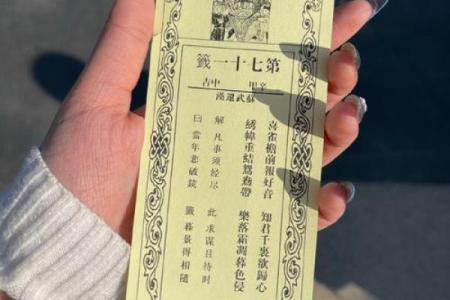 第七十一籤
辛甲 中吉
蘇武還漢
喜雀檐前報好音 知君千裏欲歸心
綉幃重結鴛鴦帶 樂落霜凋暮色侵
解 凡事須經尽 此 求謀且待時
曰 當年悲破鏡 籤 暮景得相隨